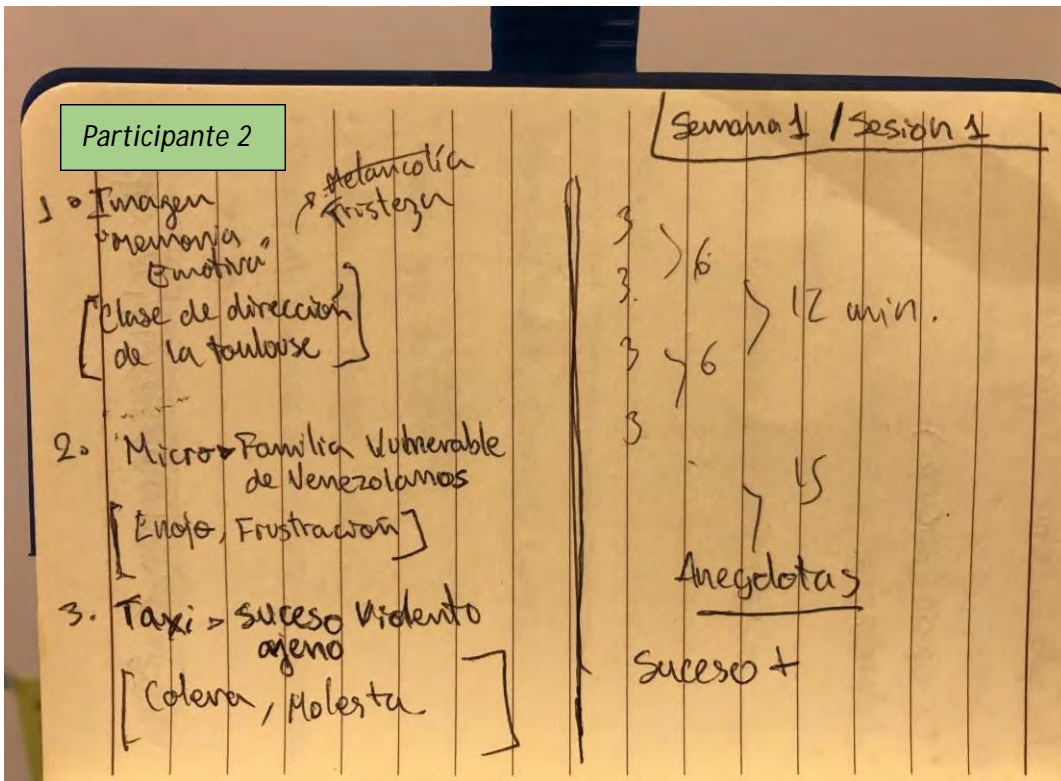 Participante 2
Semana 1 / Sesión 1
1. Imagen
"memoria
Emotiva"
Melancolía
Tristeza
[Clase de dirección
de la toulouse]
2. Micro> Familia Vulnerable
de Venezolanos
[Enojo, Frustración]
3. Taxi > suceso Violento
ajeno
[Colera, Molesta]
3
6
3.
12 min.
3
6
3
15
Anegdotas
Suceso +